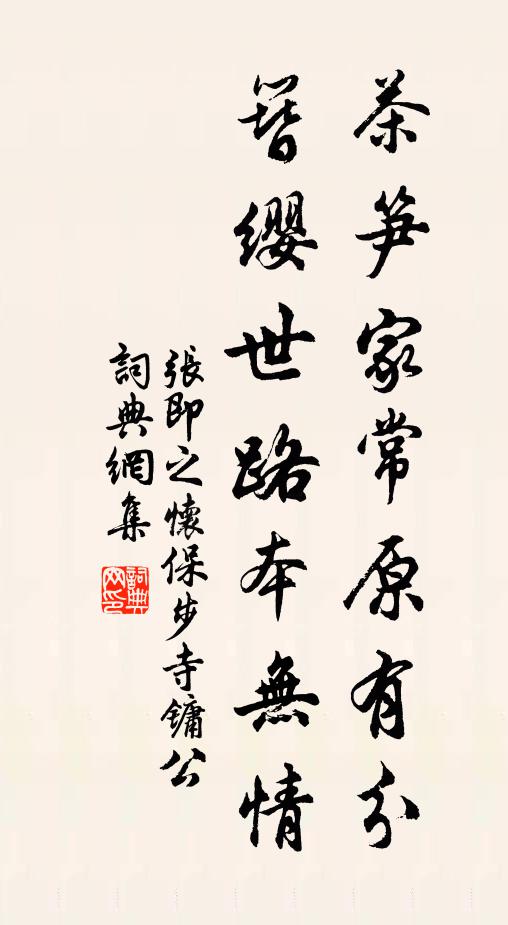 茶笋家常原有分
簪纓世路本無情
張即之懷保步寺鏞公
詞典網集
詞典網印